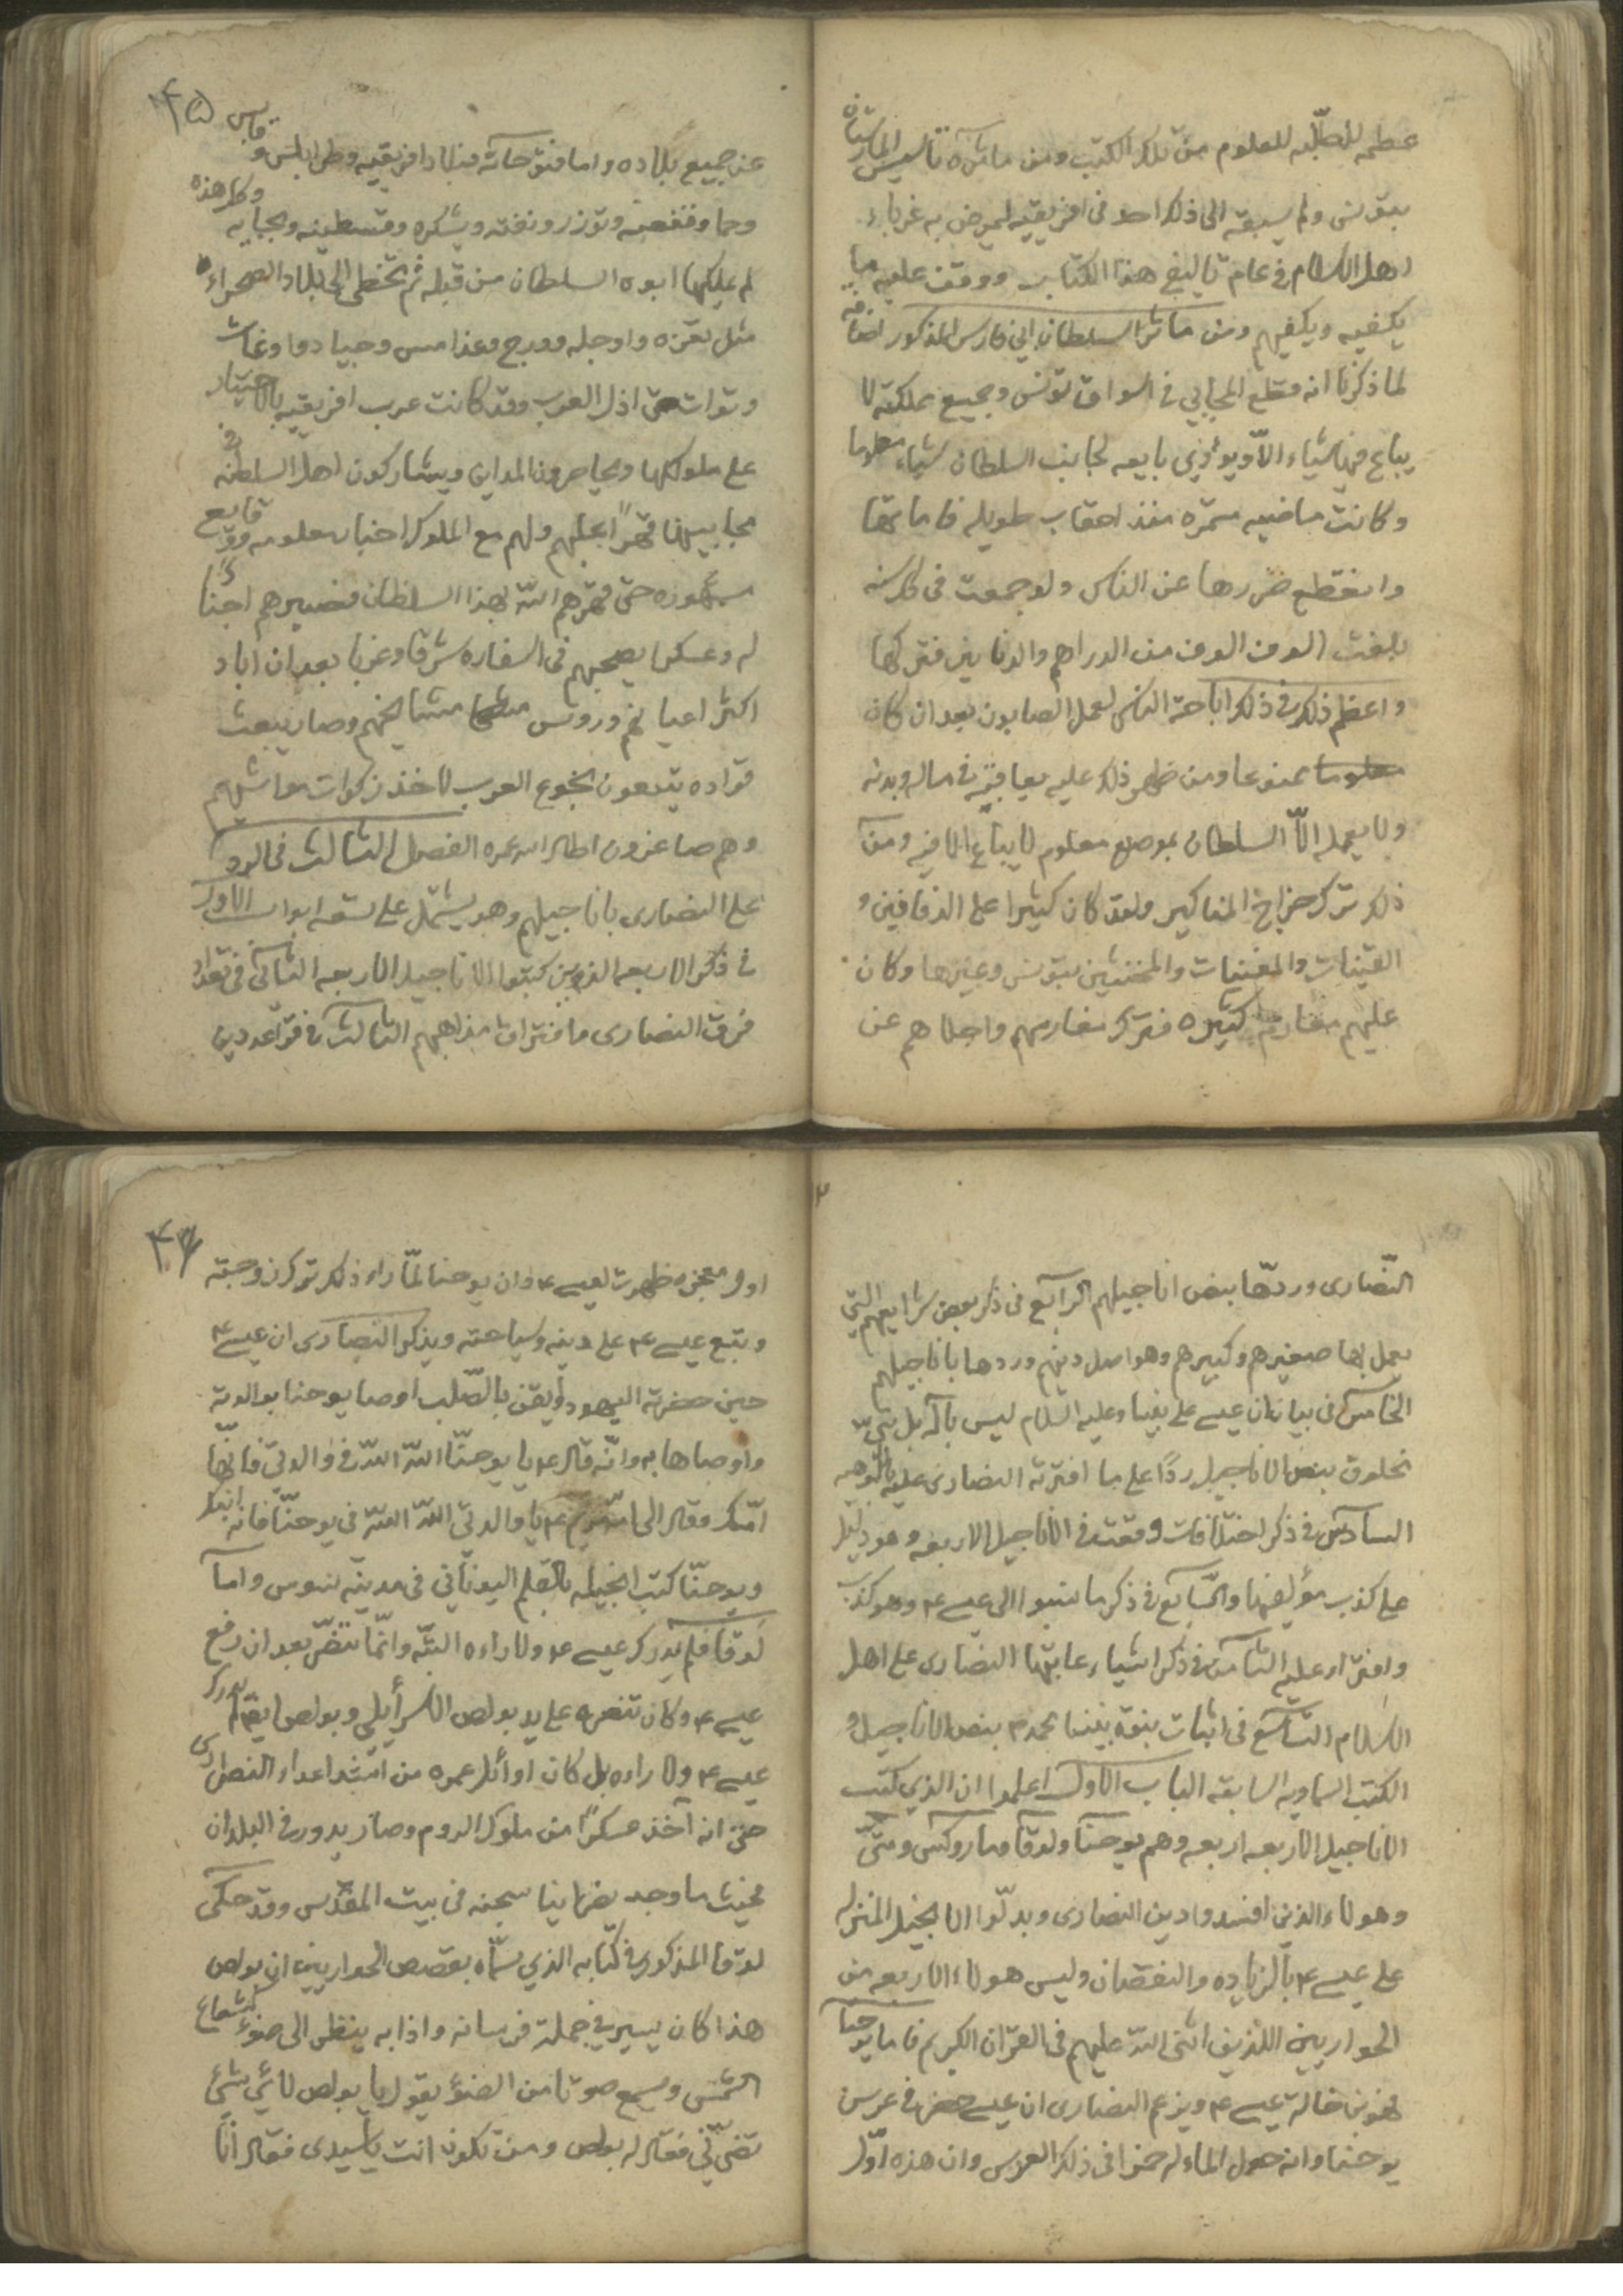 عظمه للطلبه للعلوم من تلك الكتب ومن مآثره تاسيس المارستان
بتونس ولم يسبقه الى ذلك احد فى افريقيه لمرض به غرباء
اهل الاسلام فى عام تاليف هذا الكتاب ووقف عليه ما
يكفيه ويكفيهم ومن مآثر السلطان ابي فارس المذكور اضافه
لما ذكرنا انه قطع المجابي فى اسواق تونس وجميع مملكته لا
يباع فيها شياء الا ويؤدي بايعه لجانب السلطان شياء معلوما
وكانت ماضيه مستمره منذ احقاب طويله فاماتها
وانقطع ضررها عن الناس ولو جمعت فى كل سنه
بلغت الوف الوف من الدراهم والدنانير فتركها
واعظم ذلك فى ذلك اباحة الناس لعمل الصابون بعد ان كان
معلوما ممنوعا ومن ظهر ذلك عليه يعاقبه فى ماله وبدنه
ولا يعمله الّا السلطان بموضع معلوم لا يباع الا فيه ومن
ذلك ترك خراج المناكير ولقد كان كثيرا على الدفافين و
القينات والمغنيات والمخنثين بتونس وغيرها وكان
عليهم مغارم كثيره فترك مغارمهم واجلاهم عن
۴۵
عن جميع بلاده واما فتوحاته فبلاد افريقيه وطرابلس وقابس
وحما وقفصه وتوزر ونفته وبسكره وقسطينه وبجايه وكل هذه
لم عليكها ابوه السلطان من قبله ثم تخطى الى بلاد الصحراء
مثل تقزه واوجله وورج وغذامس وجبا دوا وغات
وتوات حتى اذل العرب وقد كانت عرب افريقيه بالاختيار
على ملوكها ويحاصرون المداين ويشاركون اهل السلطنه فى
مجابيها قهرًا بجلهم ولهم مع الملوك اخبار معلومه ووقايع
مشهوره حتى قهرهم الله بهذا السلطان فصيرهم اجنادًا
له وعسكرا يصحبهم فى اسفاره شرقا وغربا بعد ان اباد
اكثر اعيانهم وروس مشايخهم وصار يبعث
قواده يتبعون نجوع العرب لاخذ زكوات مواشيهم
وهم صاغرون اطال الله عمره الفصل الثالث فى الرد
على النصارى باناجيلهم وهو يشتمل على تسعه ابواب الاول
فى ذكر الاربعه الذين كتبوا الاناجيل الاربعه الثانى فى تعداد
فرق النصارى وافتراق مذاهبهم الثالث فى قواعد دين
النّصارى وردها بنص اناجيلهم الرابع فى ذكر بعض شرايعهم التي
يعمل بها صغيرهم وكبيرهم وهو اصل دينهم وردها باناجيلهم
الخامس فى بيان ان عيسى على نبينا وعليه السلام ليس باله بل نبى
مخلوق بنص الاناجيل ردًا على ما افترته النصارى عليه بالوهيه
السادس فى ذكر اختلافات وقعت فى الاناجيل الاربعه وهو دليل
على كذب مؤلفيها والسابع فى ذكر ما نسبوا الى عيسى ع وهو كذب
وافتراء عليه الثامن فى ذكر اشياء عابتها النصارى على اهل
الاسلام التاسع فى اثبات نبوة نبينا محمد ص بنص الاناجيل و
الكتب السماويه السابقه الباب الاول اعلموا ان الذي كتب
الاناجيل الاربعه اربعه وهم يوحنا ولوقا وماروكس ومتى
وهولاء الذين افسدوا دين النصارى وبدلّوا الانجيل المنزله
على عيسى ع بالزياده والنقصان وليس هولاء الاربعه من
الحواريين اللذين اثنى الله عليهم فى القرآن الكريم فاما يوحنا
فهو بن خالة عيسى ع ويزعم النصارى ان عيسى حضر فى عرس
يوحنا وانه حول الماء له خمرا فى ذلك العرس وان هذه اوّل
۴۶
اول معجزه ظهرت لعيسى ع وان يوحنا لمّا راء ذلك ترك زوجته
وتبع عيسى ع على دينه وسياحته ويذكر النصارى ان عيسى ع
حين حضرته اليهود وأيقن بالصّلب اوصا يوحنا بوالدته
واوصاها به وانّه قال ع يا يوحنّا الله الله فى والدتى فانّها
امّك وقال الى امّه مريم ع يا والدتى الله الله فى يوحنّا فانه ابنك
ويوحنّا كتب انجيله بالقلم اليونانى فى مدينه نيوس واما
لوقا فلم يدرك عيسى ع ولا راءه البتّه وانّما تنصّر بعد ان رفع
عيسى ع وكان تنصره على يد بولص الاسرأيلى وبولص ايضا لم يدرك
عيسى ع ولا راءه بل كان اوائل عمره من اشد اعداء النصارى
حتى انه آخذ عسكرًا من ملوك الروم وصار يدور فى البلدان
فحيث ما وجد نصرانيا سجنه فى بيت المقدّس وقد حكى
لوقا المذكور فى كتابه الذي سمّاه بقصص الحواريين ان بولص
هذا كان يسير فى جملة فرسانه واذا به ينظر الى ضوء كشعاع
الشمس وسمع صوتا من الضوء يقول يا بولص لائي شئ
تضرّنّي فقال له بولص ومن تكون انت يا سيدى فقال انا